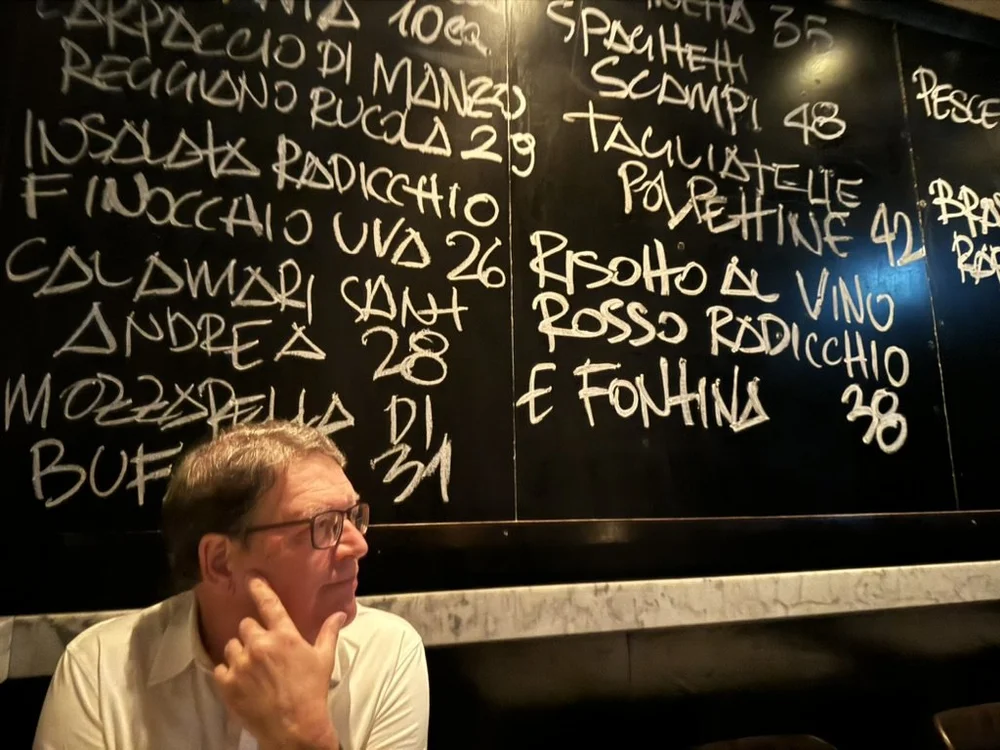 CARPACCIO DI MANZO
REGGIANO RUCOLA 29
INSALATA RADICCHIO
FINOCCHIO UVA 26
CALAMARI SANT
ANDREA 28
MOZZARELLA DI
BUF 31
35
SPAGHETTI
SCAMPI 48
TAGLIATELLE
POLPETTINE 42
RISOTTO AL VINO
ROSSO RADICCHIO
E FONTINA 38
PESCE
BRA
RAD